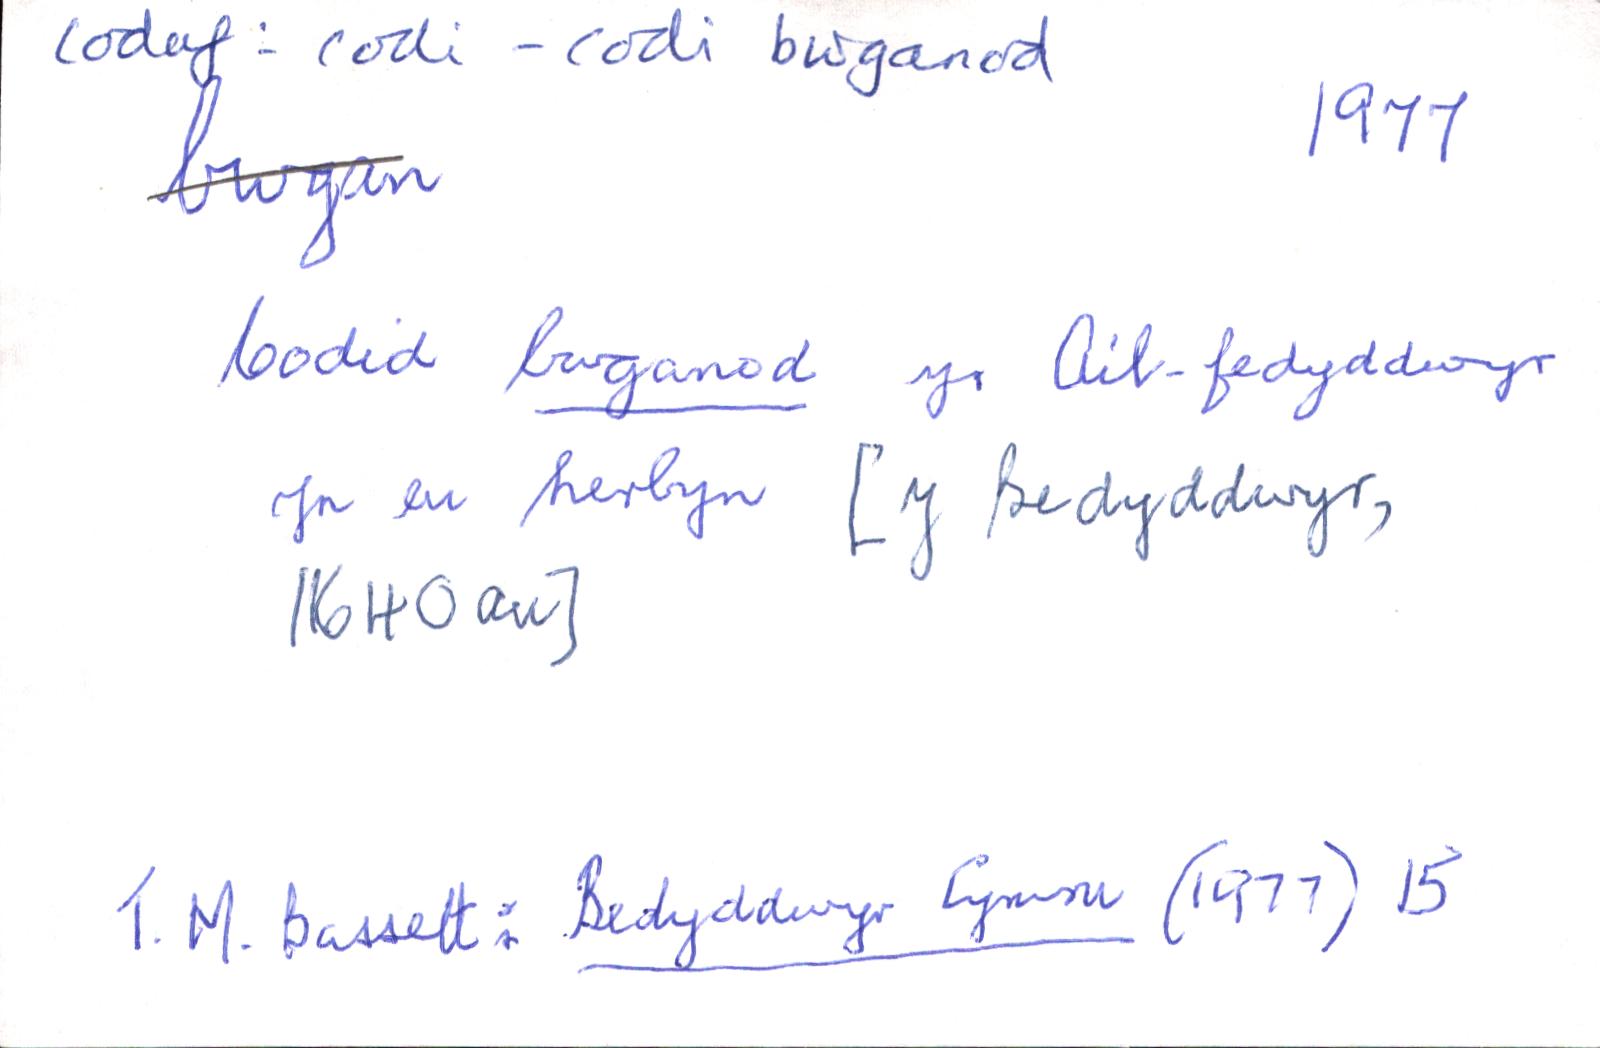 codaf: codi - codi bwganod
1977
bwgan
Codid bwganod yr Ail-fedyddwyr
yn eu herbyn [y Bedyddwyr,
1640au]
T. M. Bassett: Bedyddwyr Cymru (1977) 15